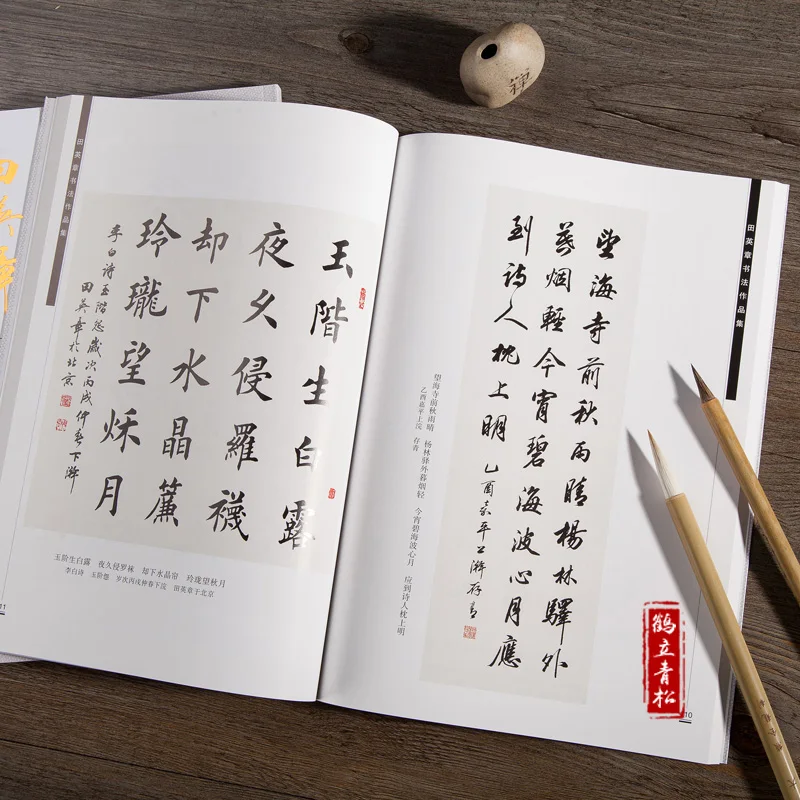 禪
田英章
田英章书法作品集
玉階生白露
夜久侵羅襪
却下水晶簾
玲瓏望秋月
李白詩玉階怨歲次丙戌仲春下澣
田英章於北京
玉阶生白露 夜久侵罗袜 却下水晶帘 玲珑望秋月
李白诗 玉阶怨 岁次丙戌仲春下浣 田英章于北京
田英章书法作品集
望海寺前秋雨晴楊林驛外
暮烟輕今宵碧海波心月應
到詩人枕上明 乙酉嘉平上澣存青
望海寺前秋雨晴 杨林驿外暮烟轻 今宵碧海波心月 应到诗人枕上明
乙酉嘉平上浣 存青
10
鹤立青松